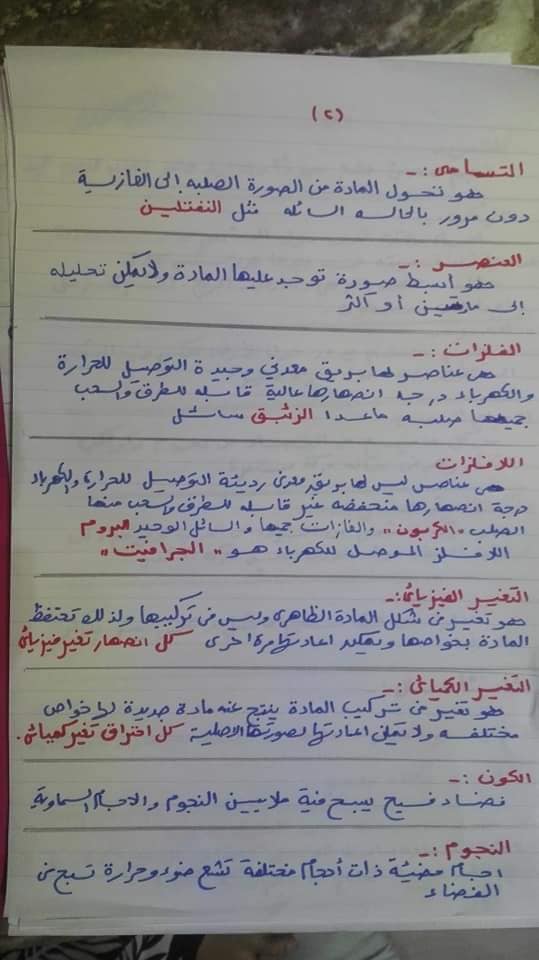 (٢)
التسامى :-
هو تحول المادة من الصورة الصلبه إلى الغازية
دون مرور بالحاله السائله مثل النفتلين
العنصر :-
هو أبسط صورة توجد عليها المادة ولا يمكن تحليله
إلى مادتين أو اكثر
الفلزات :-
هى عناصر لها بريق معدني وجيدة التوصيل للحرارة
والكهرباء درجة انصهارها عالية قابله للطرق والسحب
جميعها صلبه ماعدا الزئبق سائل
اللافلزات
هى عناصر ليس لها بريق معدنى رديئة التوصيل للحرارة والكهرباء
درجة انصهارها منخفضه غير قابله للطرق والسحب منها
الصلب "الكربون" والغازات جميعها والسائل الوحيد البروم
اللافلز الموصل للكهرباء هو "الجرافيت"
التغير الفيزيائى :-
هو تغير فى شكل المادة الظاهرى وليس فى تركيبها ولذلك تحتفظ
المادة بخواصها ويمكن اعادتها مرة اخرى كل انصهار تغير فيزيائى
التغير الكميائى :-
هو تغير فى تركيب المادة ينتج عنه مادة جديدة لها خواص
مختلفه ولا يمكن اعادتها لصورتها الاصلية كل احتراق تغير كميائى.
الكون :-
فضاء فسيح يسبح فية ملايين النجوم والاجرام السماوية
النجوم :-
اجسام مضيئة ذات أحجام مختلفة تشع ضوء وحرارة تسبح فى
الفضاء